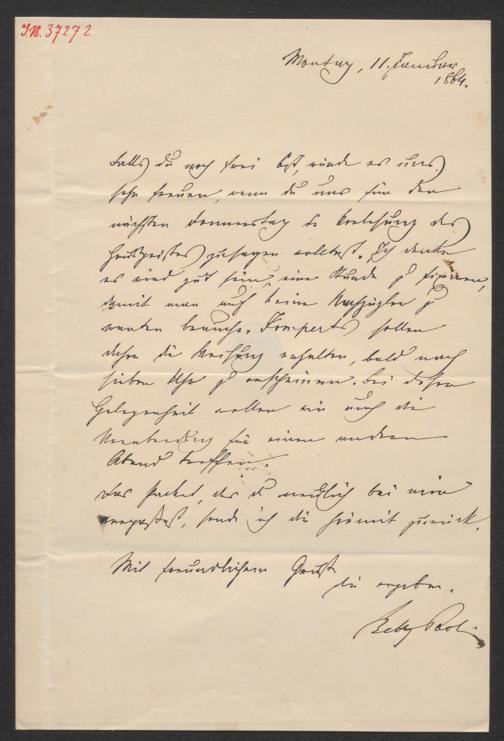 I.N. 37272
Montag, 11. Januar
1864.
Falls du noch frei bist, würde es uns
sehr freuen, wenn du uns für den
nächsten Donnerstag die Vorlesung des
zusagen wolltest. Ich denke
es wird gut sein, eine Stunde zu fixieren,
damit man auf keine Nachzügler zu
warten brauche. Gomperts sollen
daher die Weisung erhalten, bald nach
sieben Uhr zu erscheinen. Bei dieser
Gelegenheit wollen wir auch die
Verabredung für einen andern
Abend treffen.
Das Packet, das du neulich bei mir
vergaßest, sende ich dir hiemit zurück.
Mit freundlichem Gruß
die ergebne.
Betty Paoli